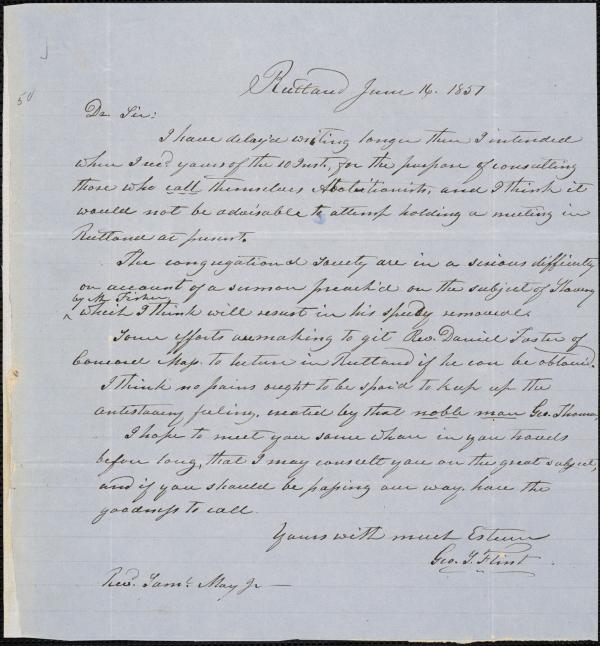 50
Rutland June 16. 1851
Dr. Sir:
I have delay'd writing longer then I intended
when I recd. yours of the 10 Inst, for the purpose of consulting
those who call themselves Abolitionists, and I think it
would not be advisable to attemp holding a meeting in
Rutland at present.
The congregational Society are in a sirious difficulty
on account of a surmon preach'd on the subject of Slavery
by Mr Fisher
^ which I think will result in his speedy removal.
Some efforts are making to git Rev. Daniel Foster of
Concord Mass. to lecture in Rutland if he can be obtained.
I think no pains ought to be spaid to keep up the
antislavery feling, created by that noble man Geo. Thomson,
I hope to meet you some whare in your travels
before long, that I may consult you on the great subject,
and if you should be passing our way. have the
goodness to call.
Yours with much Esteem
Geo. T. Flint.
Revd. Saml. May Jr